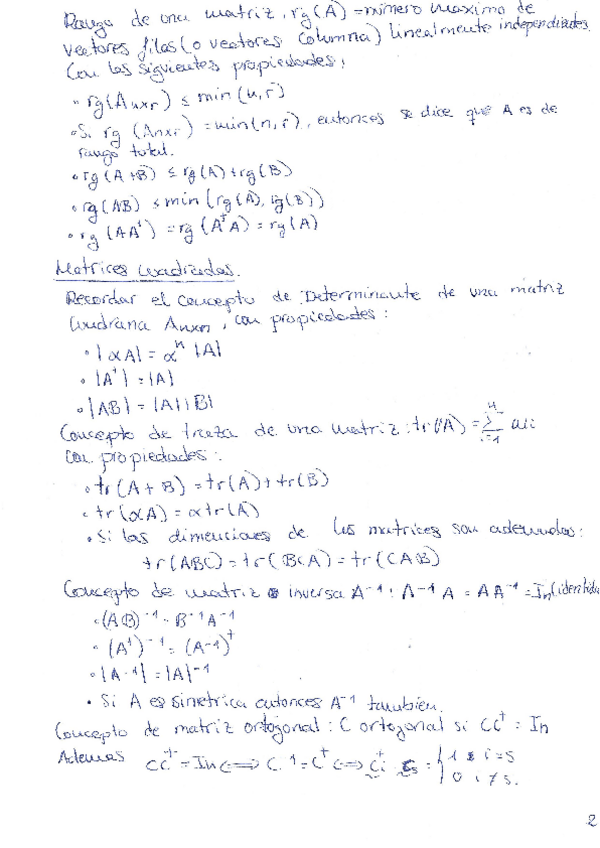 Rango de una matriz, rg(A) = número maximo de
vectores filas (o vectores columna) linealmente independientes.
Con las siguientes propiedades:
• rg(Anxr) ≤ min(n,r)
• Si rg(Anxr) = min(n,r), entonces se dice que A es de
rango total.
• rg(A+B) ≤ rg(A)+rg(B)
• rg(AB) ≤ min(rg(A), rg(B))
• rg(AAᵗ) = rg(AᵗA) = rg(A)
Matrices cuadradas.
Recordar el concepto de Determinante de una matriz
cuadrana Anxn, con propiedades:
• |αA| = αⁿ |A|
• |Aᵗ| = |A|
• |AB| = |A||B|
Concepto de traza de una matriz: tr(A) = Σ aii
con propiedades:
• tr(A+B) = tr(A)+tr(B)
• tr(αA) = αtr(A)
• Si las dimensiones de las matrices son adecuadas:
tr(ABC) = tr(BCA) = tr(CAB)
Concepto de matriz inversa A⁻¹: A⁻¹A = AA⁻¹ = In (identida
• (AB)⁻¹ = B⁻¹A⁻¹
• (Aᵗ)⁻¹ = (A⁻¹)ᵗ
• |A⁻¹| = |A|⁻¹
• Si A es simetrica entonces A⁻¹ tambien.
Concepto de matriz ortogonal: C ortogonal si CCᵗ = In
Ademas CCᵗ = In ⟺ C⁻¹ = Cᵗ ⟺
2